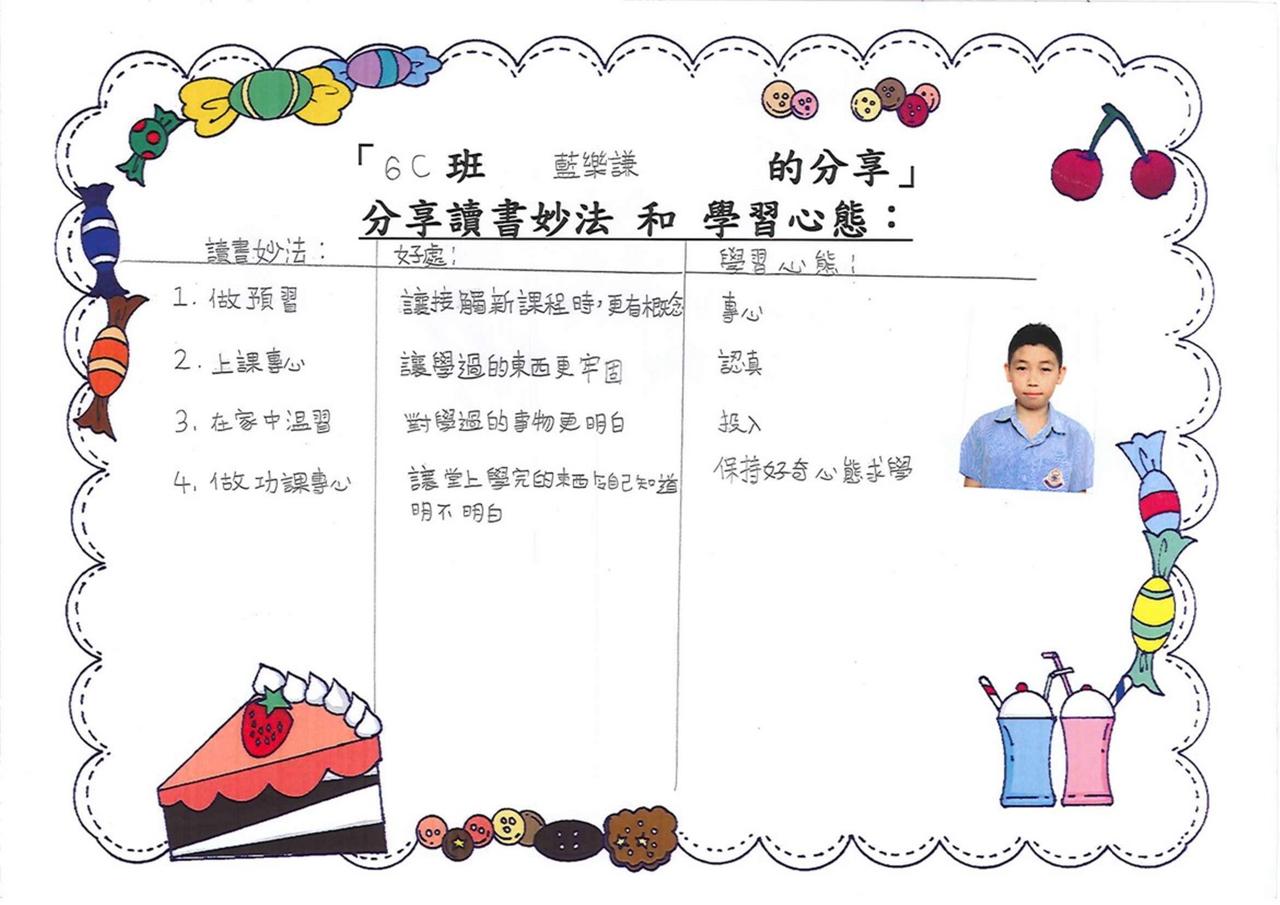 「6C 班 藍樂謙 的分享」
分享讀書妙法 和 學習心態：
讀書妙法： 好處： 學習心態：
1. 做預習 讓接觸新課程時，更有概念 專心
2. 上課專心 讓學過的東西更牢固 認真
3. 在家中溫習 對學過的事物更明白 投入
4. 做功課專心 讓堂上學完的東西 自己知道 保持好奇心態求學
明不明白